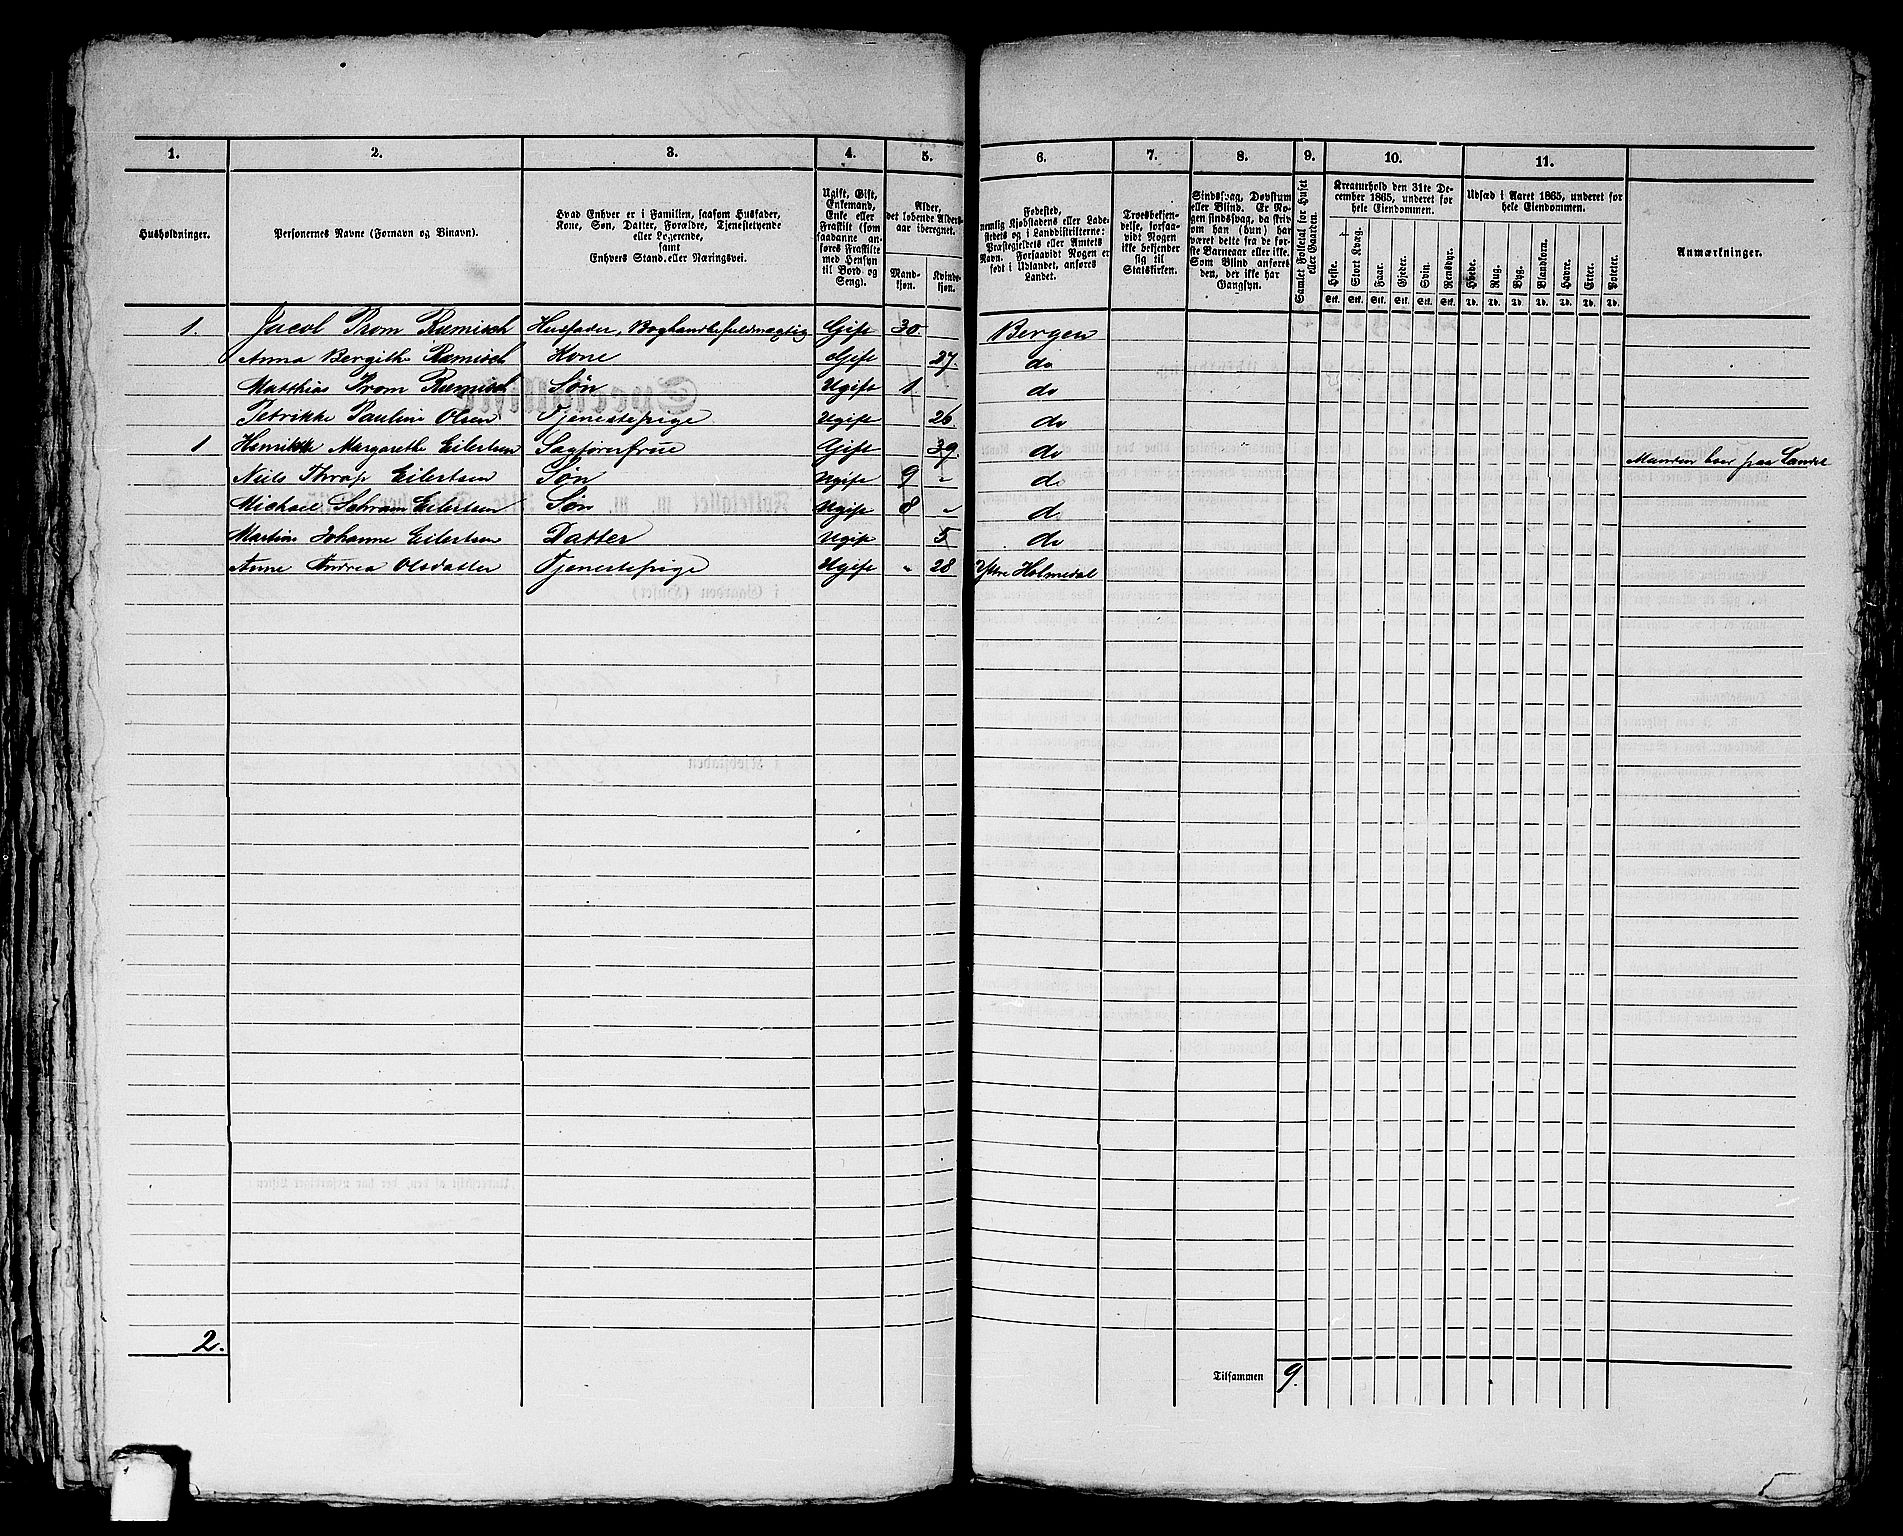 1. 2. 3. 4. 5. 6. 7. 8. 9. 10. 11.
Husholdninger.
Personernes Navne (Fornavn og Binavn).
Hvad Enhver er i Familien, saasom Husfader,
Kone, Søn, Datter, Forældre, Tjenestetyende
eller Logerende,
samt
Enhvers Stand eller Næringsvei.
Ugift, Gift,
Enkemand,
Enke eller
Fraskilt (som
saadanne an-
føres Fraskilte
med Hensyn
til Bord og
Seng).
Alder,
det løbende Alders-
aar iberegnet.
Mand-
kjøn.
Kvinde-
kjøn.
Fødested,
nemlig Kjøbstadens eller Lade-
stedets og i Landdistrikterne:
Præstegjeldets eller Amtets
Navn. Forsaavidt Nogen er
født i Udlandet, anføres
Landet.
Troesbekjen-
delse, forsaa-
vidt Nogen
ikke bekjender
sig til
Statskirken.
Sindssvag, Døvstum
eller Blind. Er No-
gen sindssvag, da skriv
om han (hun) har
været dette fra de før-
ste Barneaar eller ikke.
Som Blind anføres
den, der ikke har
Gangsyn.
Samlet Folketal for Huset
eller Gaarden.
Kreaturhold den 31te De-
cember 1865, underet for
hele Eiendommen.
Heste. Stort Kvæg. Faar. Gjeder. Svin. Rensdyr.
Stk. Stk. Stk. Stk. Stk. Stk.
Udsæd i Aaret 1865, underet for
hele Eiendommen.
Hvede. Rug. Byg. Blandkorn. Havre. Erter. Poteter.
Td. Td. Td. Td. Td. Td. Td.
Anmærkninger.
1. Jacob Prom Rumisch Husfader, Boghandlerfuldmægtig Gift 30 Bergen
Anna Bergithe Rumisch Kone Gift 27. do
Matthias Prom Rumisch Søn Ugift 1 do
Petrikke Pauline Olsen Tjenestepige Ugift 26. do
1 Henrikke Margarethe Eilertsen Sagførerfrue Gift 39. do Manden boer paa Landet
Niels Thrap Eilertsen Søn Ugift 9 - do
Michael Schram Eilertsen Søn Ugift 8 - do
Martine Johanne Eilertsen Datter Ugift 5 do
Anne Andrea Olsdatter Tjenestepige Ugift " 28 Yttre Holmedal
2.
Tilsammen 9.